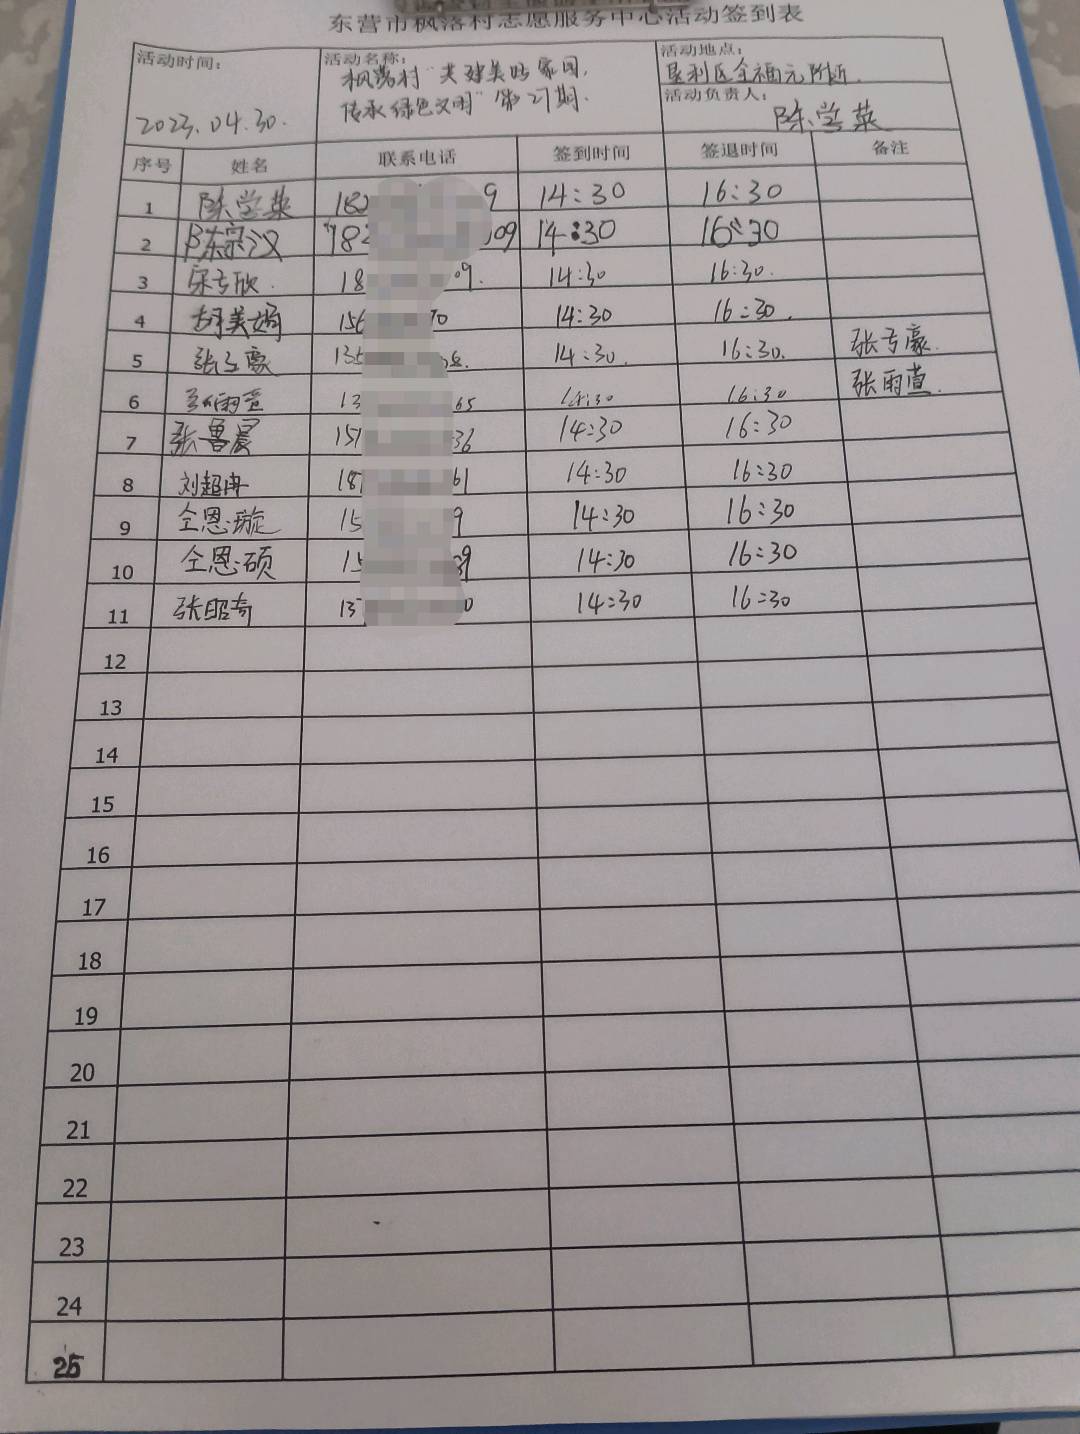 东营市枫落村志愿服务中心活动签到表
活动时间： 活动名称： 活动地点：
2023.04.30. 枫落村“共建美好家园， 垦利区全福元附近.
传承绿色文明”第27期. 活动负责人： 陈学英
序号 姓名 联系电话 签到时间 签退时间 备注
1 陈学英 182 9 14:30 16:30
2 陈宗汉 182 09 14:30 16:30
3 宋亏欣. 18 09. 14:30 16:30.
4 胡美娟 156 70 14:30 16:30.
5 张亏豪 135 14:30. 16:30. 张亏豪.
6 张雨萱 13 65 14:30 16:30 张雨萱.
7 张鲁晨 151 36 14:30 16:30
8 刘超冉 187 61 14:30 16:30
9 仝恩璇 15 9 14:30 16:30
10 仝恩硕 15 39 14:30 16:30
11 张昭奇 13 0 14:30 16:30
12
13
14
15
16
17
18
19
20
21
22
23
24
25